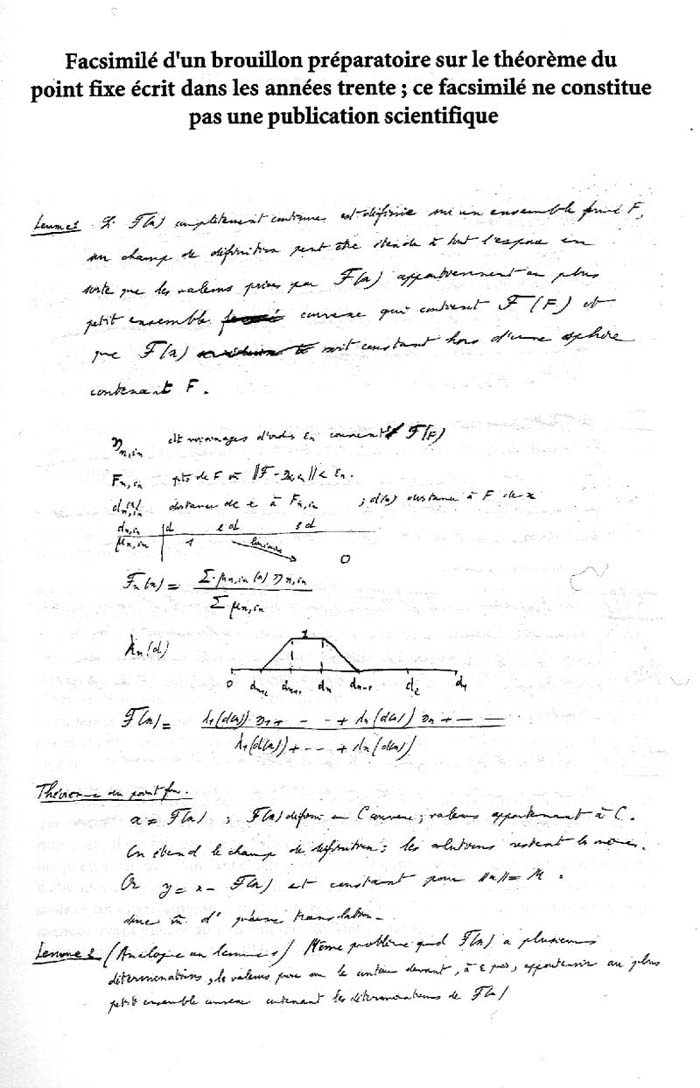 Facsimilé d'un brouillon préparatoire sur le théorème du
point fixe écrit dans les années trente ; ce facsimilé ne constitue
pas une publication scientifique
Lemme 1. Si F(x) complètement continue est définie sur un ensemble fermé F,
son champ de définition peut être étendu à tout l'espace en
sorte que les valeurs prises par F(x) appartiennent au plus
petit ensemble convexe qui contient F(F) et
que F(x) soit constant hors d'une sphère
contenant F.
η n,in voisinages d'ordre εn couvrent F(F)
F n,in pts de F où ||F - η n,in|| < εn.
d n,in (x) distance de x à F n,in ; d(x) distance à F de x
d n,in | d 2d 3d
μ n,in | 1 linéaire 0
F n(x) = Σ μ n,in (x) η n,in
Σ μ n,in
λn(d)
1
0 dn+2 dn+1 dn dn-1 d2 d1
F(x) = λ1(d(x)) + - - + λn(d(x)) + -
λ1(d(x)) + -- + λn(d(x))
Théorème du point fixe.
x = F(x) ; F(x) défini en C convexe ; valeurs appartenant à C.
On étend le champ de définition : les solutions restent les mêmes.
Or y = x - F(x) est constant pour ||x|| = M.
donc m. d° qu'une translation -
Lemme 2 (Analogie au lemme 1) Même problème quand F(x) a plusieurs
déterminations, les valeurs sur le devant, à ε près, appartenir au plus
petit ensemble convexe contenant les déterminations de F(x)